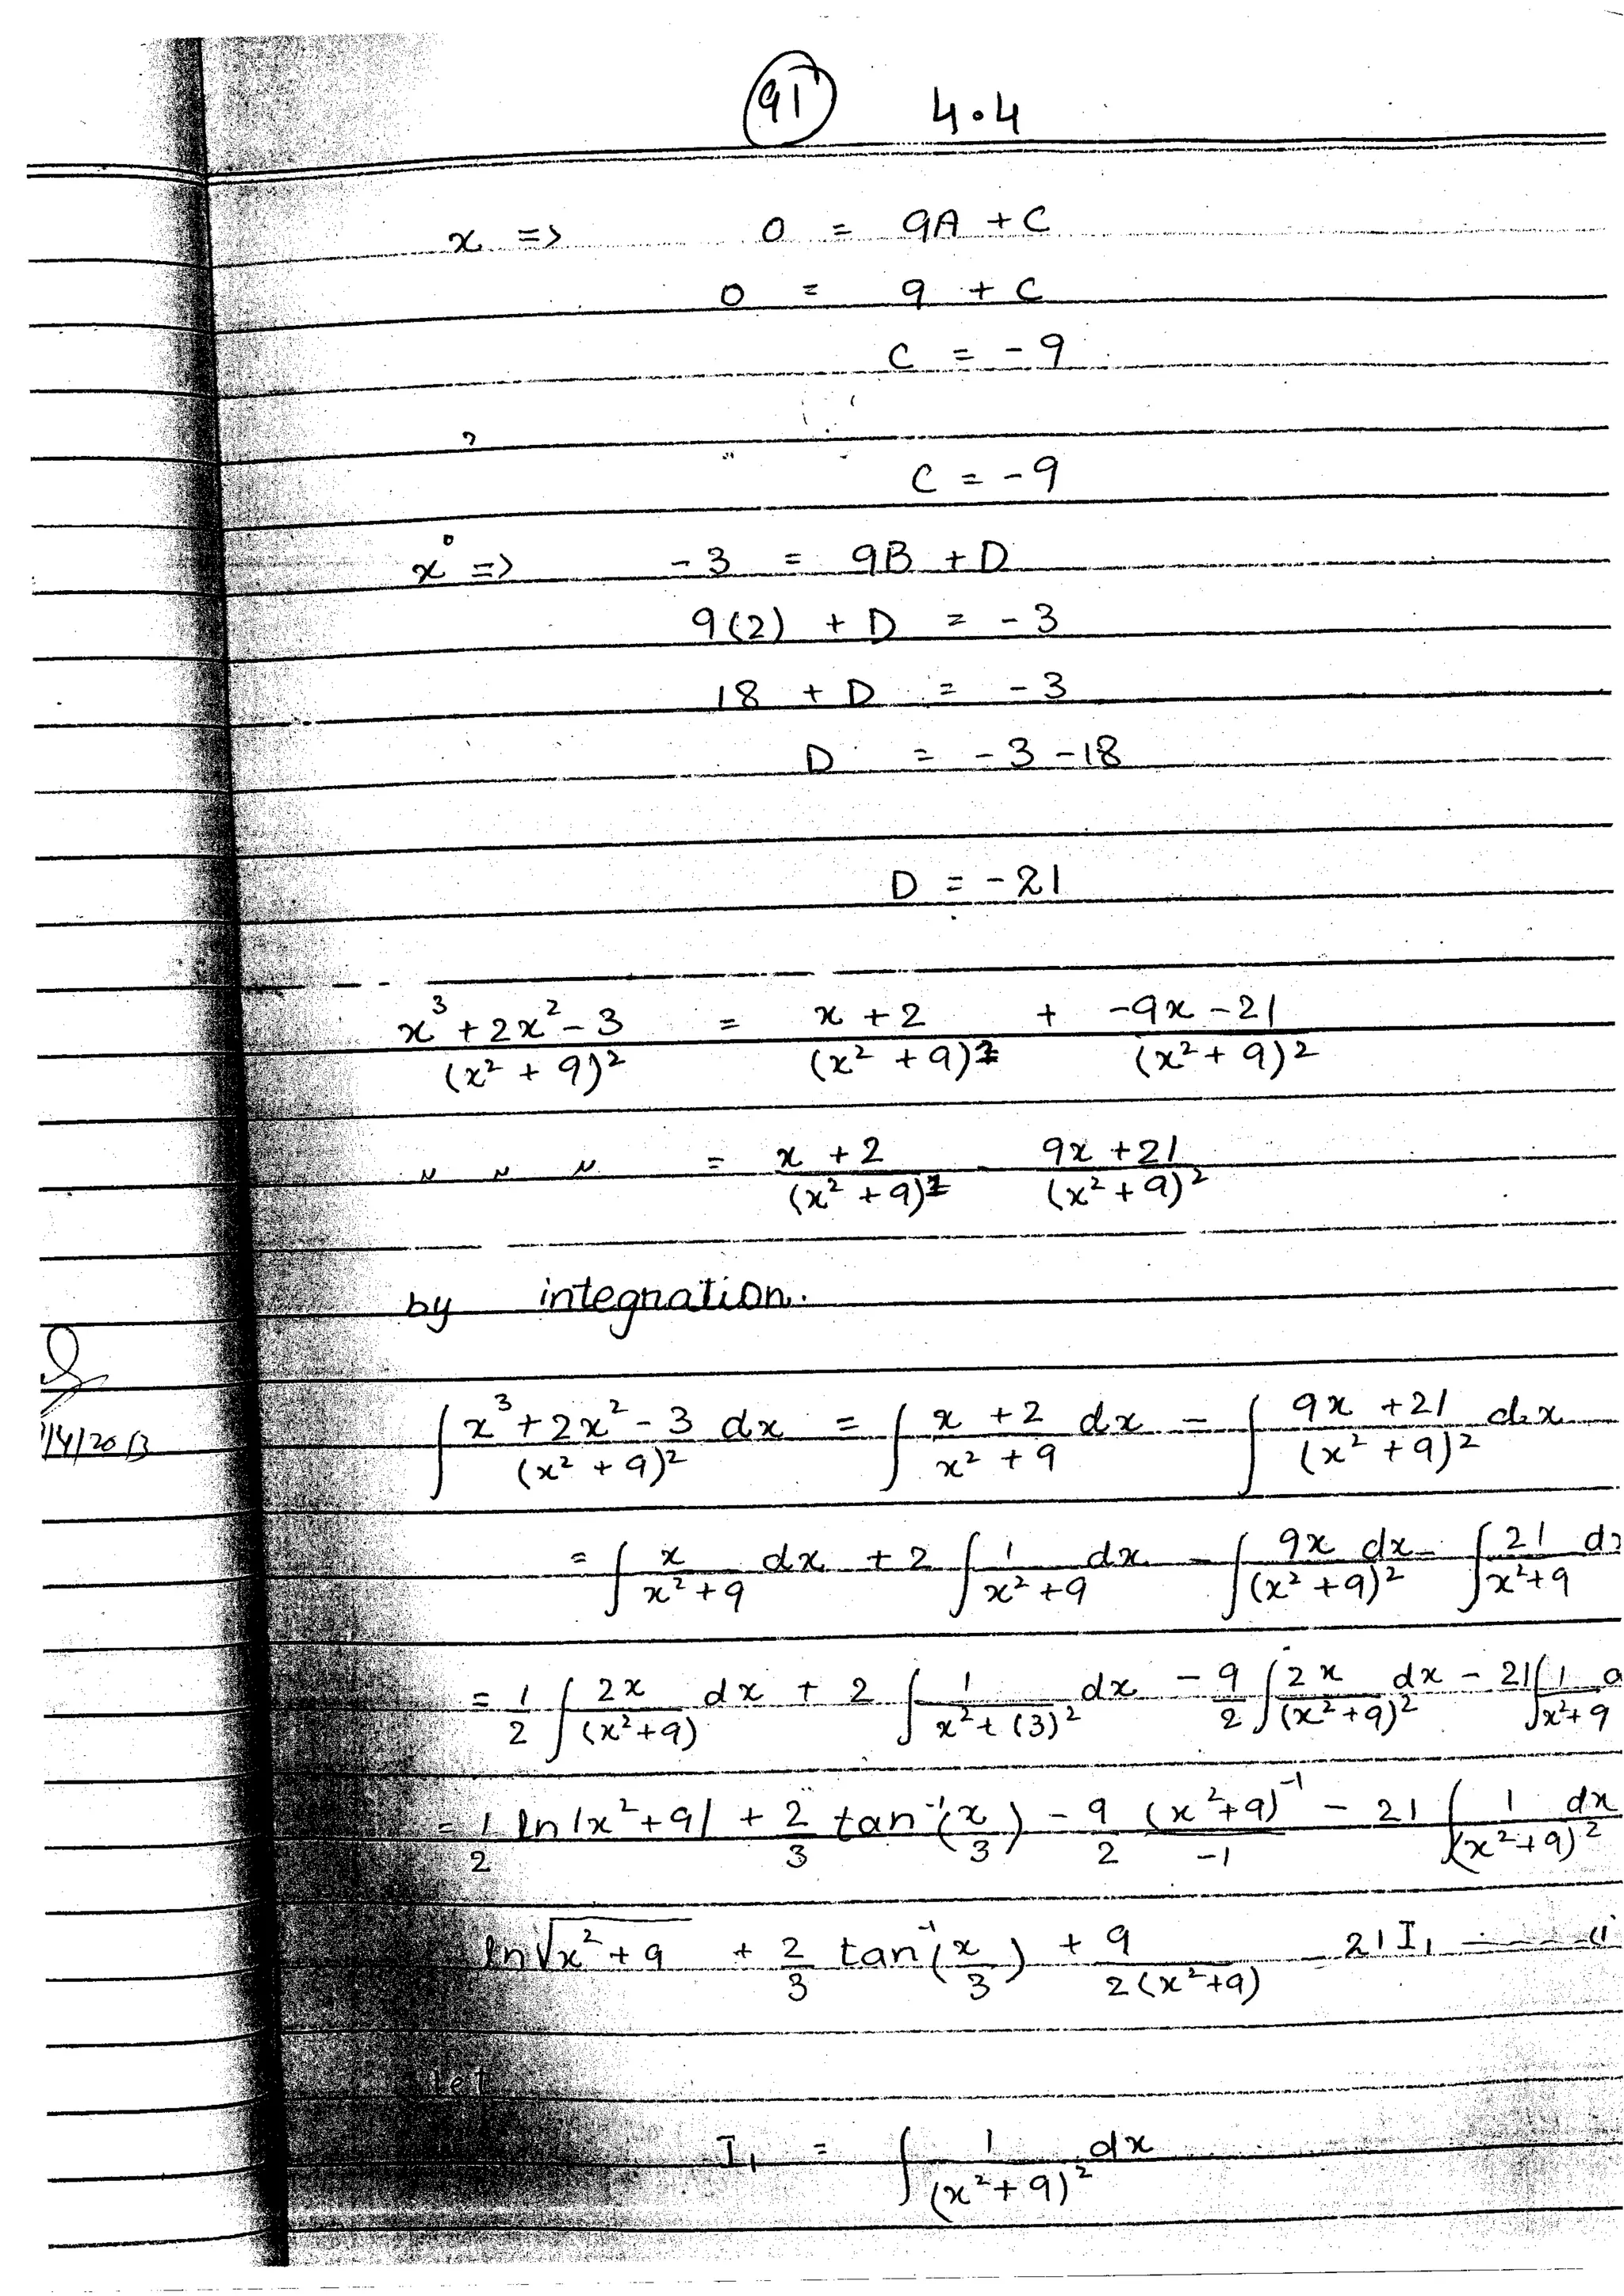 91 4.4
x => 0 = 9A + C
0 = 9 + C
C = -9
C = -9
x⁰ => -3 = 9B + D
9(2) + D = -3
18 + D = -3
D = -3 -18
D = -21
x³ + 2x² - 3 / (x² + 9)² = x + 2 / (x² + 9) + -9x - 21 / (x² + 9)²
〃 〃 〃 = x + 2 / (x² + 9) - 9x + 21 / (x² + 9)²
by integration.
∫ x³ + 2x² - 3 / (x² + 9)² dx = ∫ x + 2 / x² + 9 dx = ∫ 9x + 21 / (x² + 9)² dx
= ∫ x / x² + 9 dx + 2 ∫ 1 / x² + 9 dx - ∫ 9x dx / (x² + 9)² - ∫ 21 / x² + 9 dx
= 1/2 ∫ 2x / (x² + 9) dx + 2 ∫ 1 / x² + (3)² dx - 9/2 ∫ 2x / (x² + 9)² dx - 21 ∫ 1 / x² + 9
= 1/2 ln |x² + 9| + 2/3 tan⁻¹(x/3) - 9/2 (x² + 9)⁻¹ / -1 - 21 ∫ 1 / (x² + 9)² dx
ln √x² + 9 + 2/3 tan⁻¹(x/3) + 9 / 2(x² + 9) - 21 I₁
let
I₁ = ∫ 1 / (x² + 9)² dx